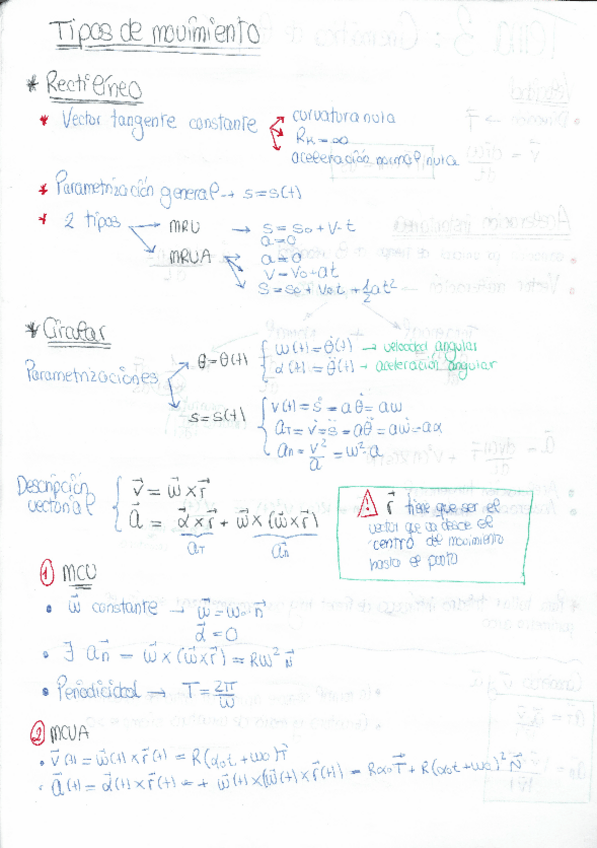 Tipos de movimiento
* Rectilíneo
* Vector tangente constante → curvatura nula
→ Rk = ∞
→ aceleración normal nula
* Parametrización general → s = s(t)
* 2 tipos → MRU → s = s0 + v·t
a = 0
→ MRUA → a = 0
v = v0 + at
s = s0 + v0t + 1/2 at²
* Circular
Parametrizaciones → θ = θ(t) { ω(t) = θ̇(t) → velocidad angular
α(t) = θ̈(t) → aceleración angular
→ s = s(t) { v(t) = ṡ = aθ̇ = aω
aT = v̇ = s̈ = aθ̈ = aω̇ = aα
an = v²/a = ω²·a
Descripción vectorial { v⃗ = ω⃗ × r⃗
a⃗ = α⃗ × r⃗ + ω⃗ × (ω⃗ × r⃗)
a⃗T a⃗n
⚠ r⃗ tiene que ser el
vector que va desde el
centro del movimiento
hasta el punto
① MCU
• ω⃗ constante → ω⃗ = ω0·n⃗
α⃗ = 0
• ∃ a⃗n = ω⃗ × (ω⃗ × r⃗) = Rω² N⃗
• Periodicidad → T = 2π/ω
② MCUA
• v⃗(t) = ω⃗(t) × r⃗(t) = R(α0t + ω0) T⃗
• a⃗(t) = α⃗(t) × r⃗(t) = + ω⃗(t) × (ω⃗(t) × r⃗(t)) = Rα0 T⃗ + R(α0t + ω0)² N⃗